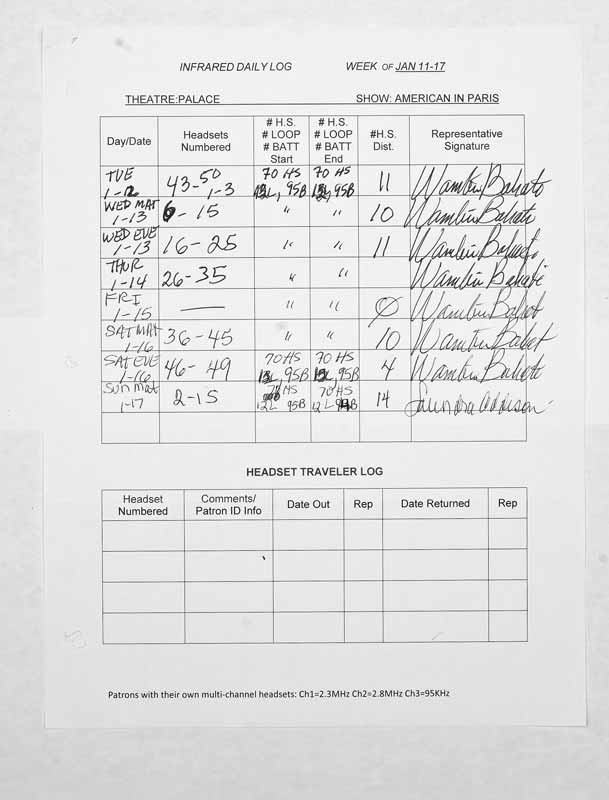 INFRARED DAILY LOG WEEK OF JAN 11-17
THEATRE:PALACE SHOW: AMERICAN IN PARIS
Day/Date Headsets Numbered # H.S. # LOOP # BATT Start # H.S. # LOOP # BATT End #H.S. Dist. Representative Signature
TUE 1-12 43-50 1-3 70 HS 12L, 95B 70 HS 12L, 95B 11 Wambui Bahati
WED MAT 1-13 6-15 " " 10 Wambui Bahati
WED EVE 1-13 16-25 " " 11 Wambui Bahati
THUR 1-14 26-35 " " Wambui Bahati
FRI 1-15 — " " Ø Wambui Bahati
SAT MAT 1-16 36-45 10 Wambui Bahati
SAT EVE 1-16 46-49 70 HS 12L, 95B 70 HS 12L, 95B 4 Wambui Bahati
Sun mat 1-17 2-15 70 HS 12L 95B 70 HS 12L 95B 14 Saundra Addison
HEADSET TRAVELER LOG
Headset Numbered Comments/ Patron ID Info Date Out Rep Date Returned Rep
Patrons with their own multi-channel headsets: Ch1=2.3MHz Ch2=2.8MHz Ch3=95KHz